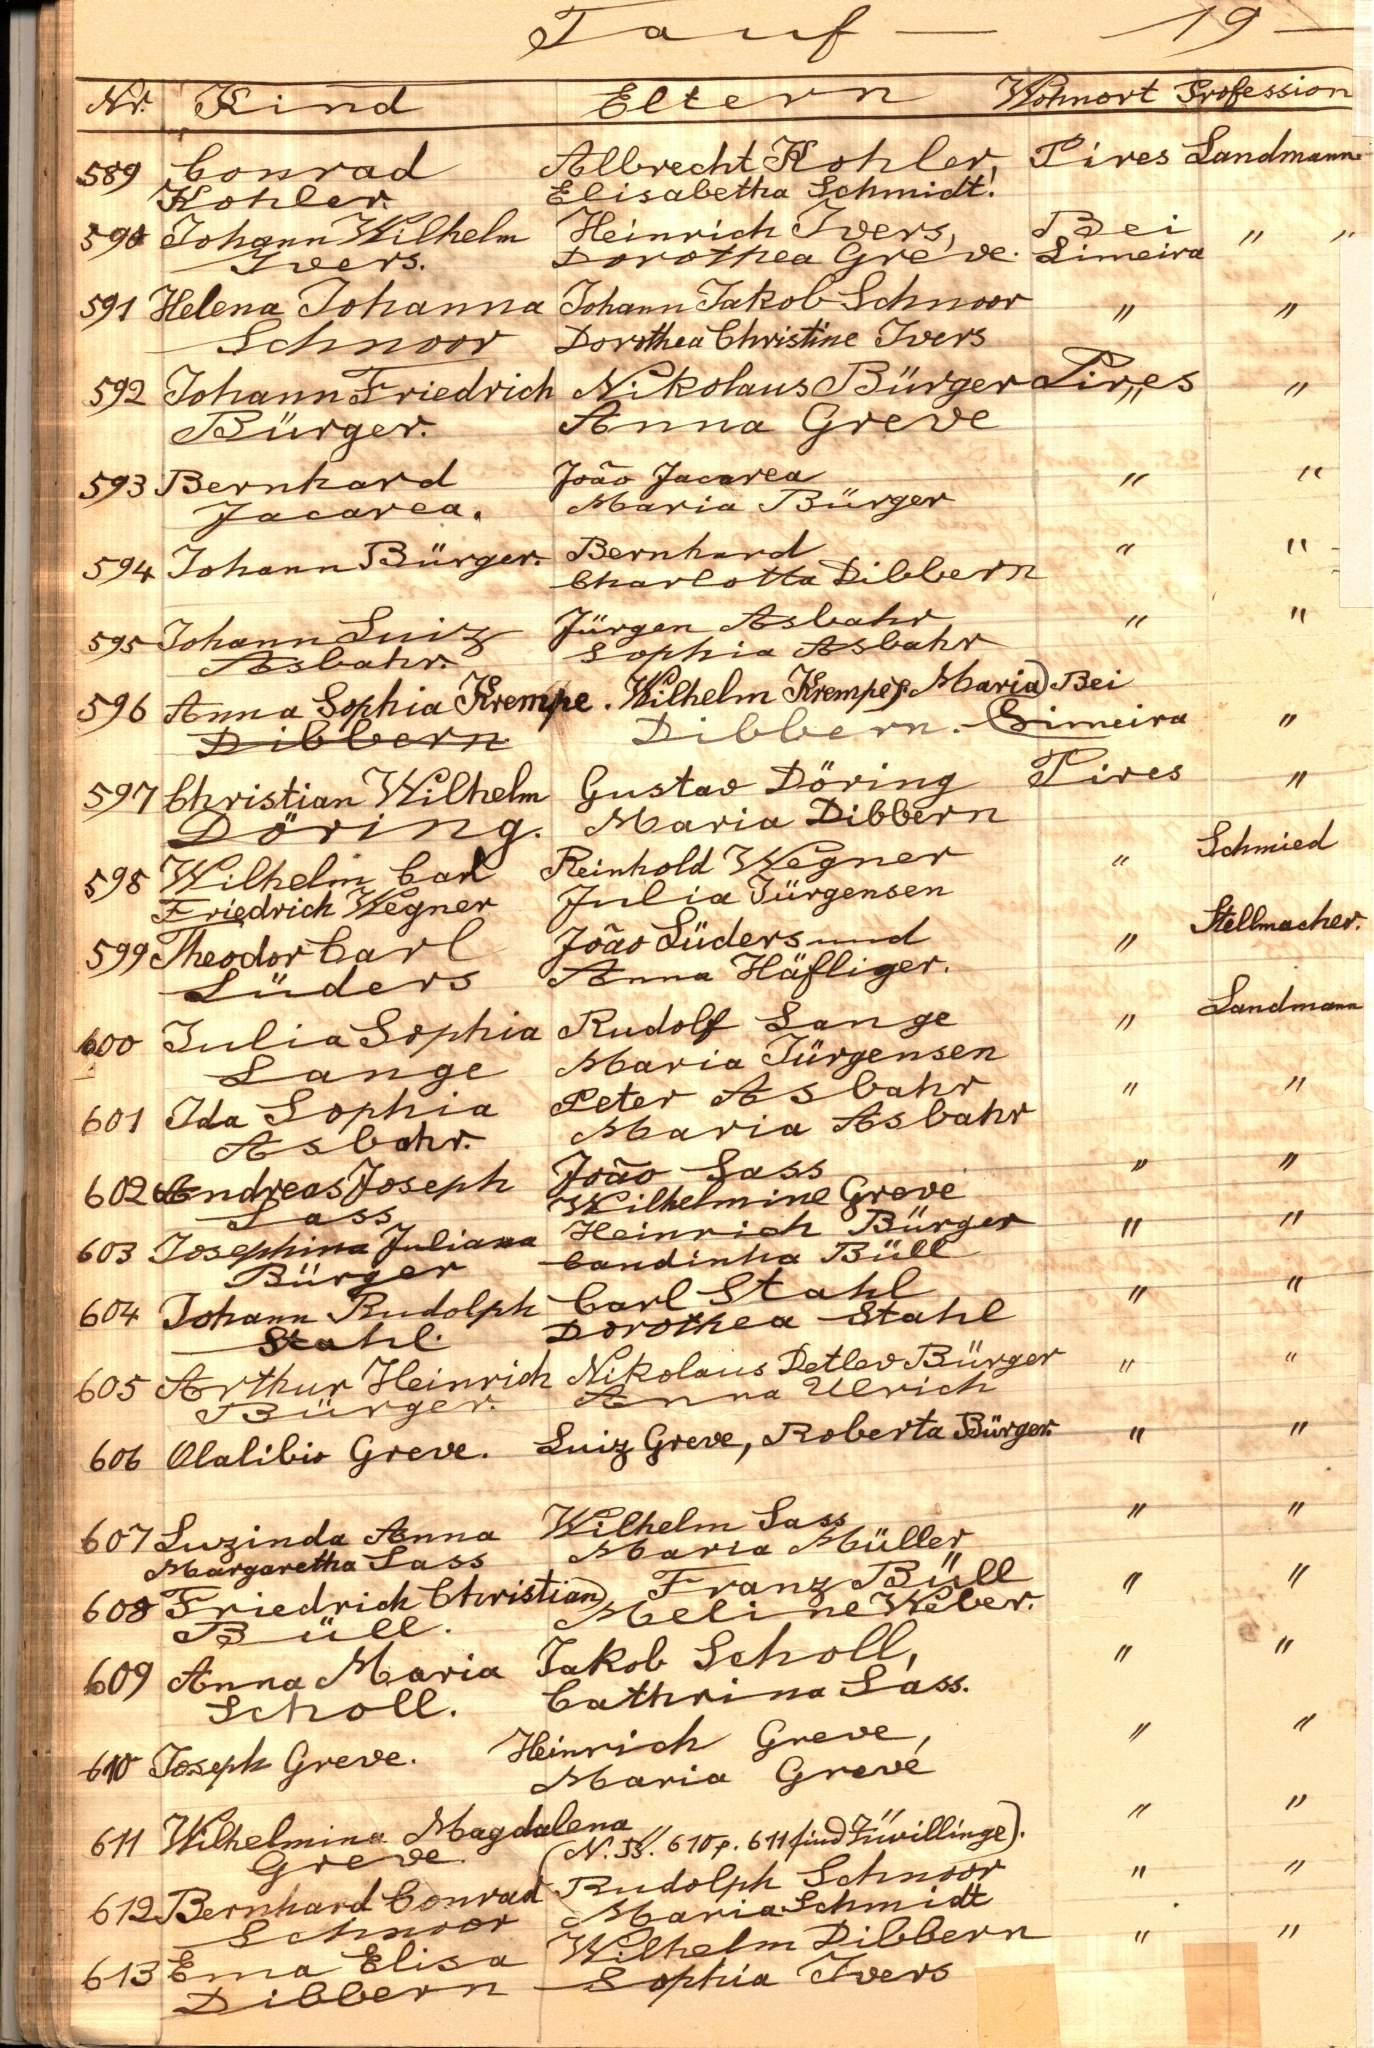 Tauf — 19 —
Nr. Kind Eltern Wohnort Profession
589 Conrad Albrecht Kohler, Pires Landmann
Kohler. Elisabetha Schmidt.
590 Johann Wilhelm Heinrich Ivers, Bei " "
Ivers. Dorothea Greve. Limeira
591 Helena Johanna Johann Jakob Schnoor " "
Schnoor Dorothea Christine Ivers
592 Johann Friedrich Nikolaus Bürger Pires "
Bürger. Anna Greve
593 Bernhard João Jacarea " "
Jacarea. Maria Bürger
594 Johann Bürger. Bernhard " "
Charlotta Dibbern
595 Johann Luiz Jürgen Asbahr " "
Asbahr. Sophia Asbahr
596 Anna Sophia Krempe. Wilhelm Krempe, Maria) Bei
Dibbern Dibbern. Limeira "
597 Christian Wilhelm Gustav Döring Pires "
Döring. Maria Dibbern
598 Wilhelm Carl Reinhold Wegner " Schmied
Friedrich Wegner Julia Jürgensen
599 Theodor Carl João Lüders und " Stellmacher.
Lüders Anna Häfliger.
600 Julia Sophia Rudolf Lange " Landmann
Lange Maria Jürgensen
601 Ida Sophia Peter Asbahr " "
Asbahr. Maria Asbahr
602 Andreas Joseph João Sass " "
Sass Wilhelmine Greve
603 Josephina Juliana Heinrich Bürger " "
Bürger Candinha Büll
604 Johann Rudolph Carl Stahl " "
Stahl. Dorothea Stahl
605 Arthur Heinrich Nikolaus Detlev Bürger " "
Bürger. Anna Ulrich
606 Olalibio Greve. Luiz Greve, Roberta Bürger. " "
607 Luzinda Anna Wilhelm Sass " "
Margaretha Sass Maria Müller
608 Friedrich Christian) Franz Büll " "
Büll. Meline Weber.
609 Anna Maria Jakob Scholl, " "
Scholl. Cathrina Sass.
610 Joseph Greve. Heinrich Greve, " "
Maria Greve
611 Wilhelmina Magdalena " "
Greve. (N.B. 610 u. 611 sind Zwillinge).
612 Bernhard Conrad Rudolph Schnoor " "
Schnoor Maria Schmidt
613 Ema Elisa Wilhelm Dibbern " "
Dibbern Sophia Ivers